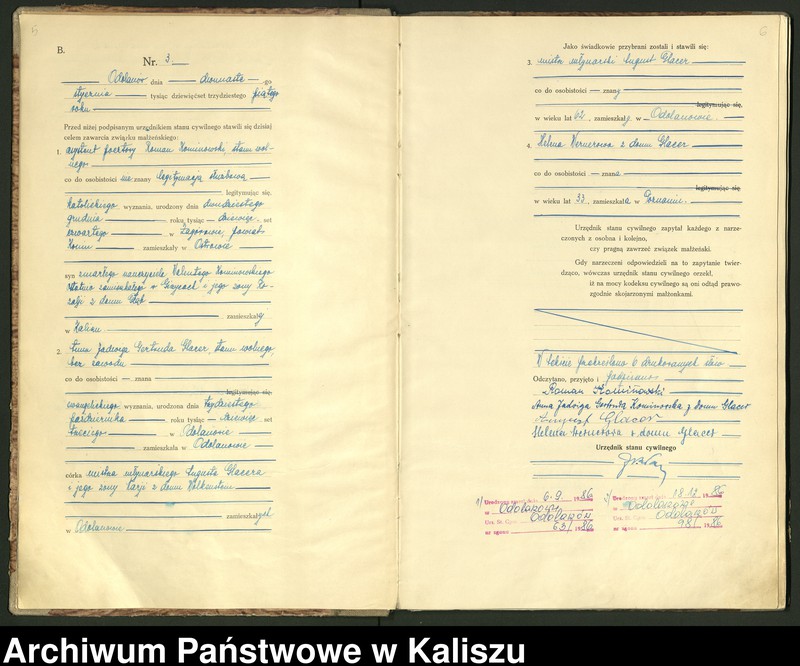 B.
Nr. 3
Odolanów dnia dwunasto go
stycznia tysiąc dziewięćset trzydziestego piątego
roku
Przed niżej podpisanym urzędnikiem stanu cywilnego stawili się dzisiaj
celem zawarcia związku małżeńskiego:
1. asystent pocztowy Roman Kominowski, stanu wol-
nego
co do osobistości nie znany legitymacja służbowa
legitymując się,
katolickiego wyznania, urodzony dnia dwudziestego
grudnia roku tysiąc dziewięć set
czwartego w Zagórowie, powiat
Konin zamieszkały w Ostrowie
syn zmarłego nauczyciela Walentego Kominowskiego
ostatnio zamieszkałego w i jego żony
z domu
zamieszkały
w Kalisu
2. Anna Jadwiga Gertruda Glacer stanu wolnego,
bez zawodu
co do osobistości — znana
legitymując się,
ewangelickiego wyznania, urodzona dnia trzydziestego
października roku tysiąc dziewięć set
trzeciego w Odolanowie
zamieszkała w Odolanowie
córka mistrza młynarskiego Augusta Glacera
i jego żony z domu
zamieszkałych
w Odolanowie
6
Jako świadkowie przybrani zostali i stawili się:
3. mistrz młynarski August Glacer
co do osobistości — znany
legitymując się,
w wieku lat 62, zamieszkały w Odolanowie.
4. Helena Wernerowa z domu Glacer
co do osobistości — znana
legitymując się,
w wieku lat 33, zamieszkała w Poznaniu.
Urzędnik stanu cywilnego zapytał każdego z narze-
czonych z osobna i kolejno,
czy pragną zawrzeć związek małżeński.
Gdy narzeczeni odpowiedzieli na to zapytanie twier-
dząco, wówczas urzędnik stanu cywilnego orzekł,
iż na mocy kodeksu cywilnego są oni odtąd prawo-
zgodnie skojarzonymi małżonkami.
W tekście przekreślono 6 drukowanych słów
Odczytano, przyjęto i podpisano
Roman Kominowski
Anna Jadwiga Gertruda Kominowska z domu Glacer
August Glacer
Helena Wernerowa z domu Glacer
Urzędnik stanu cywilnego
1/ Urodzony dnia 6.9. 1936
w Odolanowie
Urz. St. Cyw. Odolanów
nr zgonu 63/ 1936
2/ Urodzony dnia 18.12. 1936
w Odolanowie
Urz. St. Cyw. Odolanów
nr zgonu 98/ 1936
Archiwum Państwowe w Kaliszu